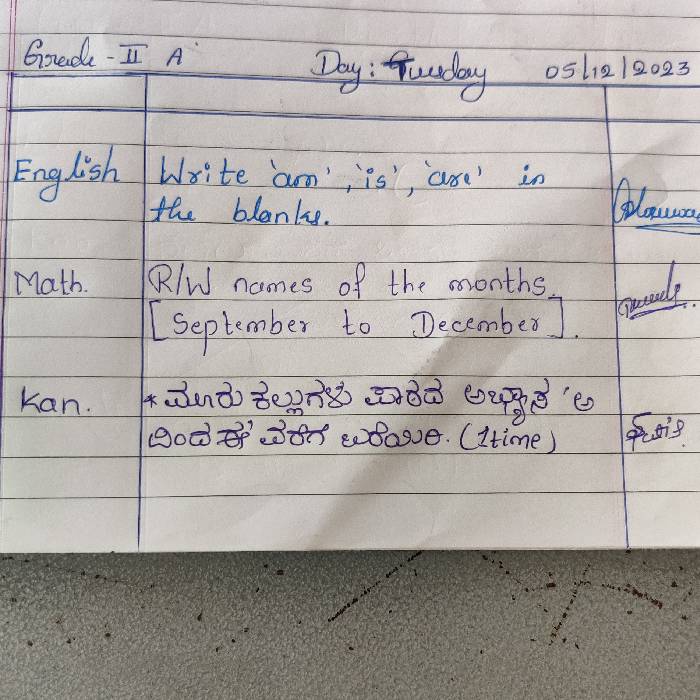 Grade - II A Day: Tuesday 05/12/2023
English Write 'am', 'is', 'are' in
the blanks.
Math. R/W names of the months.
[September to December].
Kan. * ಮೂರು ಕಲ್ಲುಗಳು ಪಾಠದ ಅಭ್ಯಾಸ 'ಅ
ದಿಂದ ಈ' ವರೆಗೆ ಬರೆಯಿರಿ. (1time)